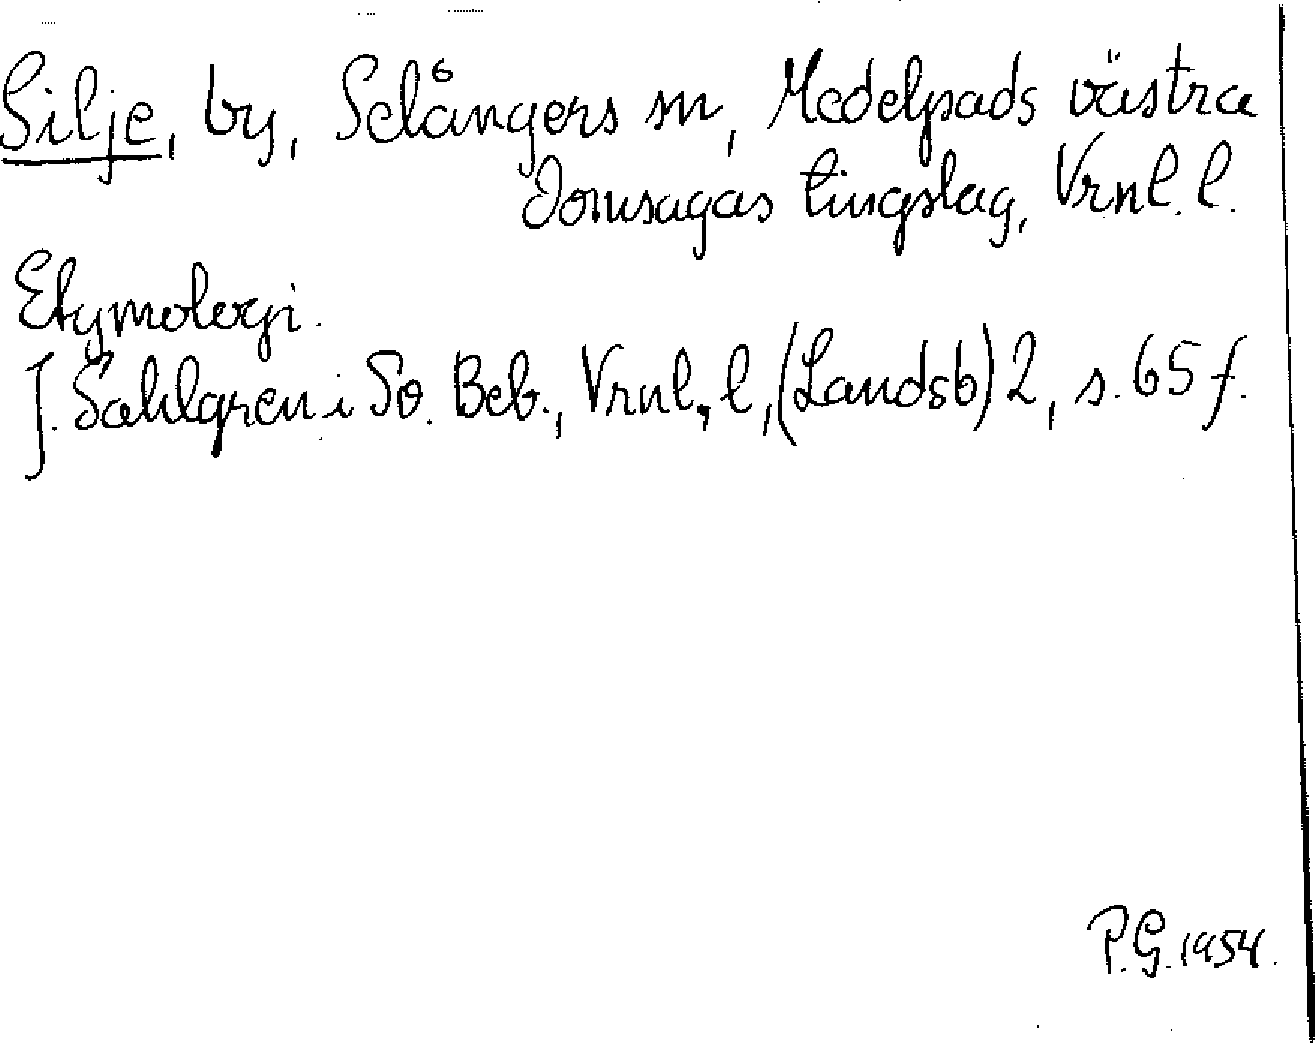 Silje, by, Selångers sn, Medelpads västra
domsagas tingslag, Vrnl. l.
Etymologi.
J. Sahlgren i Sv. Beb., Vrnl, l, (Landsb) 2, s. 65 f.
P.G. 1954.